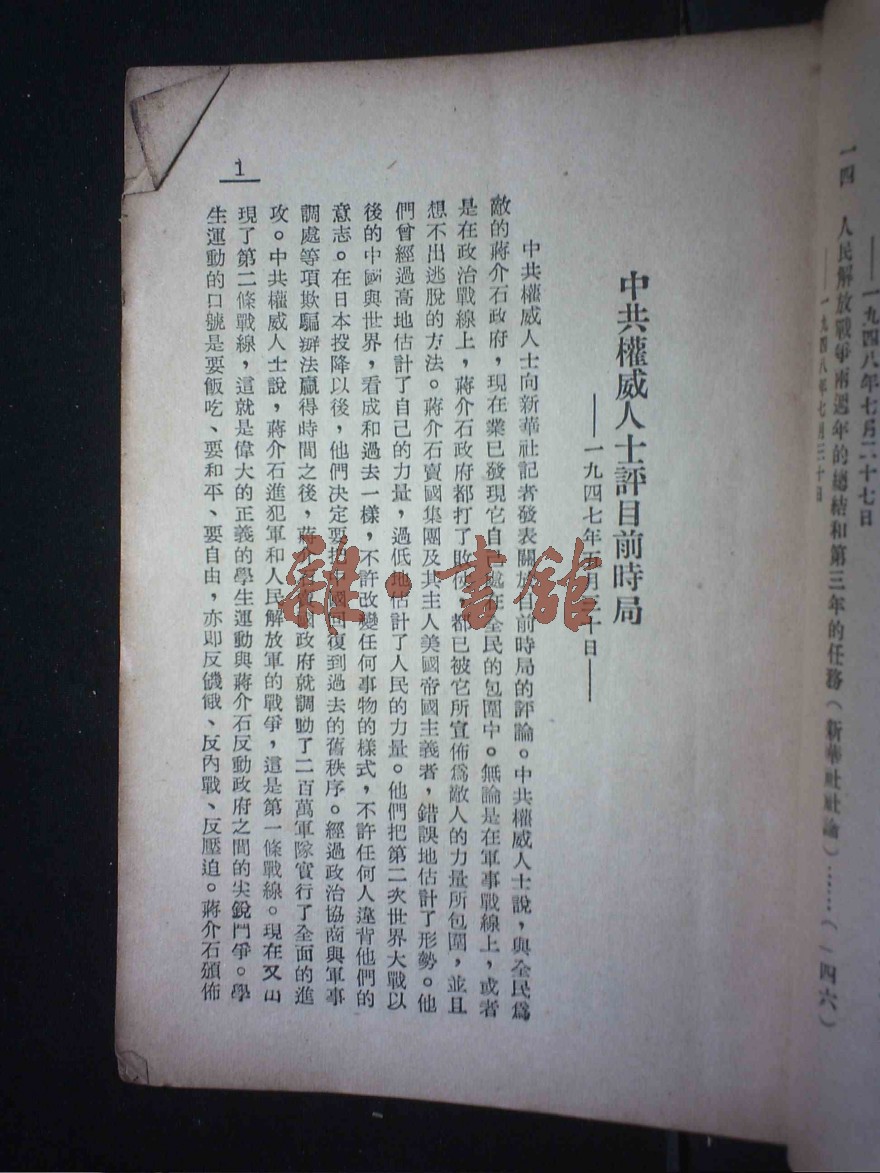 ——一九四八年七月二十七日
一四 人民解放戰爭兩週年的總結和第三年的任務(新華社社論)……(一四六)
——一九四八年七月三十日
中共權威人士評目前時局
——一九四七年五月三十日——
中共權威人士向新華社記者發表關於目前時局的評論。中共權威人士說,與全民爲
敵的蔣介石政府,現在業已發現它自己處在全民的包圍中。無論是在軍事戰線上,或者
是在政治戰線上,蔣介石政府都打了敗仗,都已被它所宣佈爲敵人的力量所包圍,並且
想不出逃脫的方法。蔣介石賣國集團及其主人美國帝國主義者,錯誤地估計了形勢。他
們曾經過高地估計了自己的力量,過低地估計了人民的力量。他們把第二次世界大戰以
後的中國與世界,看成和過去一樣,不許改變任何事物的樣式,不許任何人違背他們的
意志。在日本投降以後,他們決定要把中國回復到過去的舊秩序。經過政治協商與軍事
調處等項欺騙辦法贏得時間之後,蔣介國政府就調動了二百萬軍隊實行了全面的進
攻。中共權威人士說,蔣介石進犯軍和人民解放軍的戰爭,這是第一條戰線。現在又出
現了第二條戰線,這就是偉大的正義的學生運動與蔣介石反動政府之間的尖銳鬥爭。學
生運動的口號是要飯吃、要和平、要自由,亦即反饑餓、反內戰、反壓迫。蔣介石頒佈
1
雜·書館